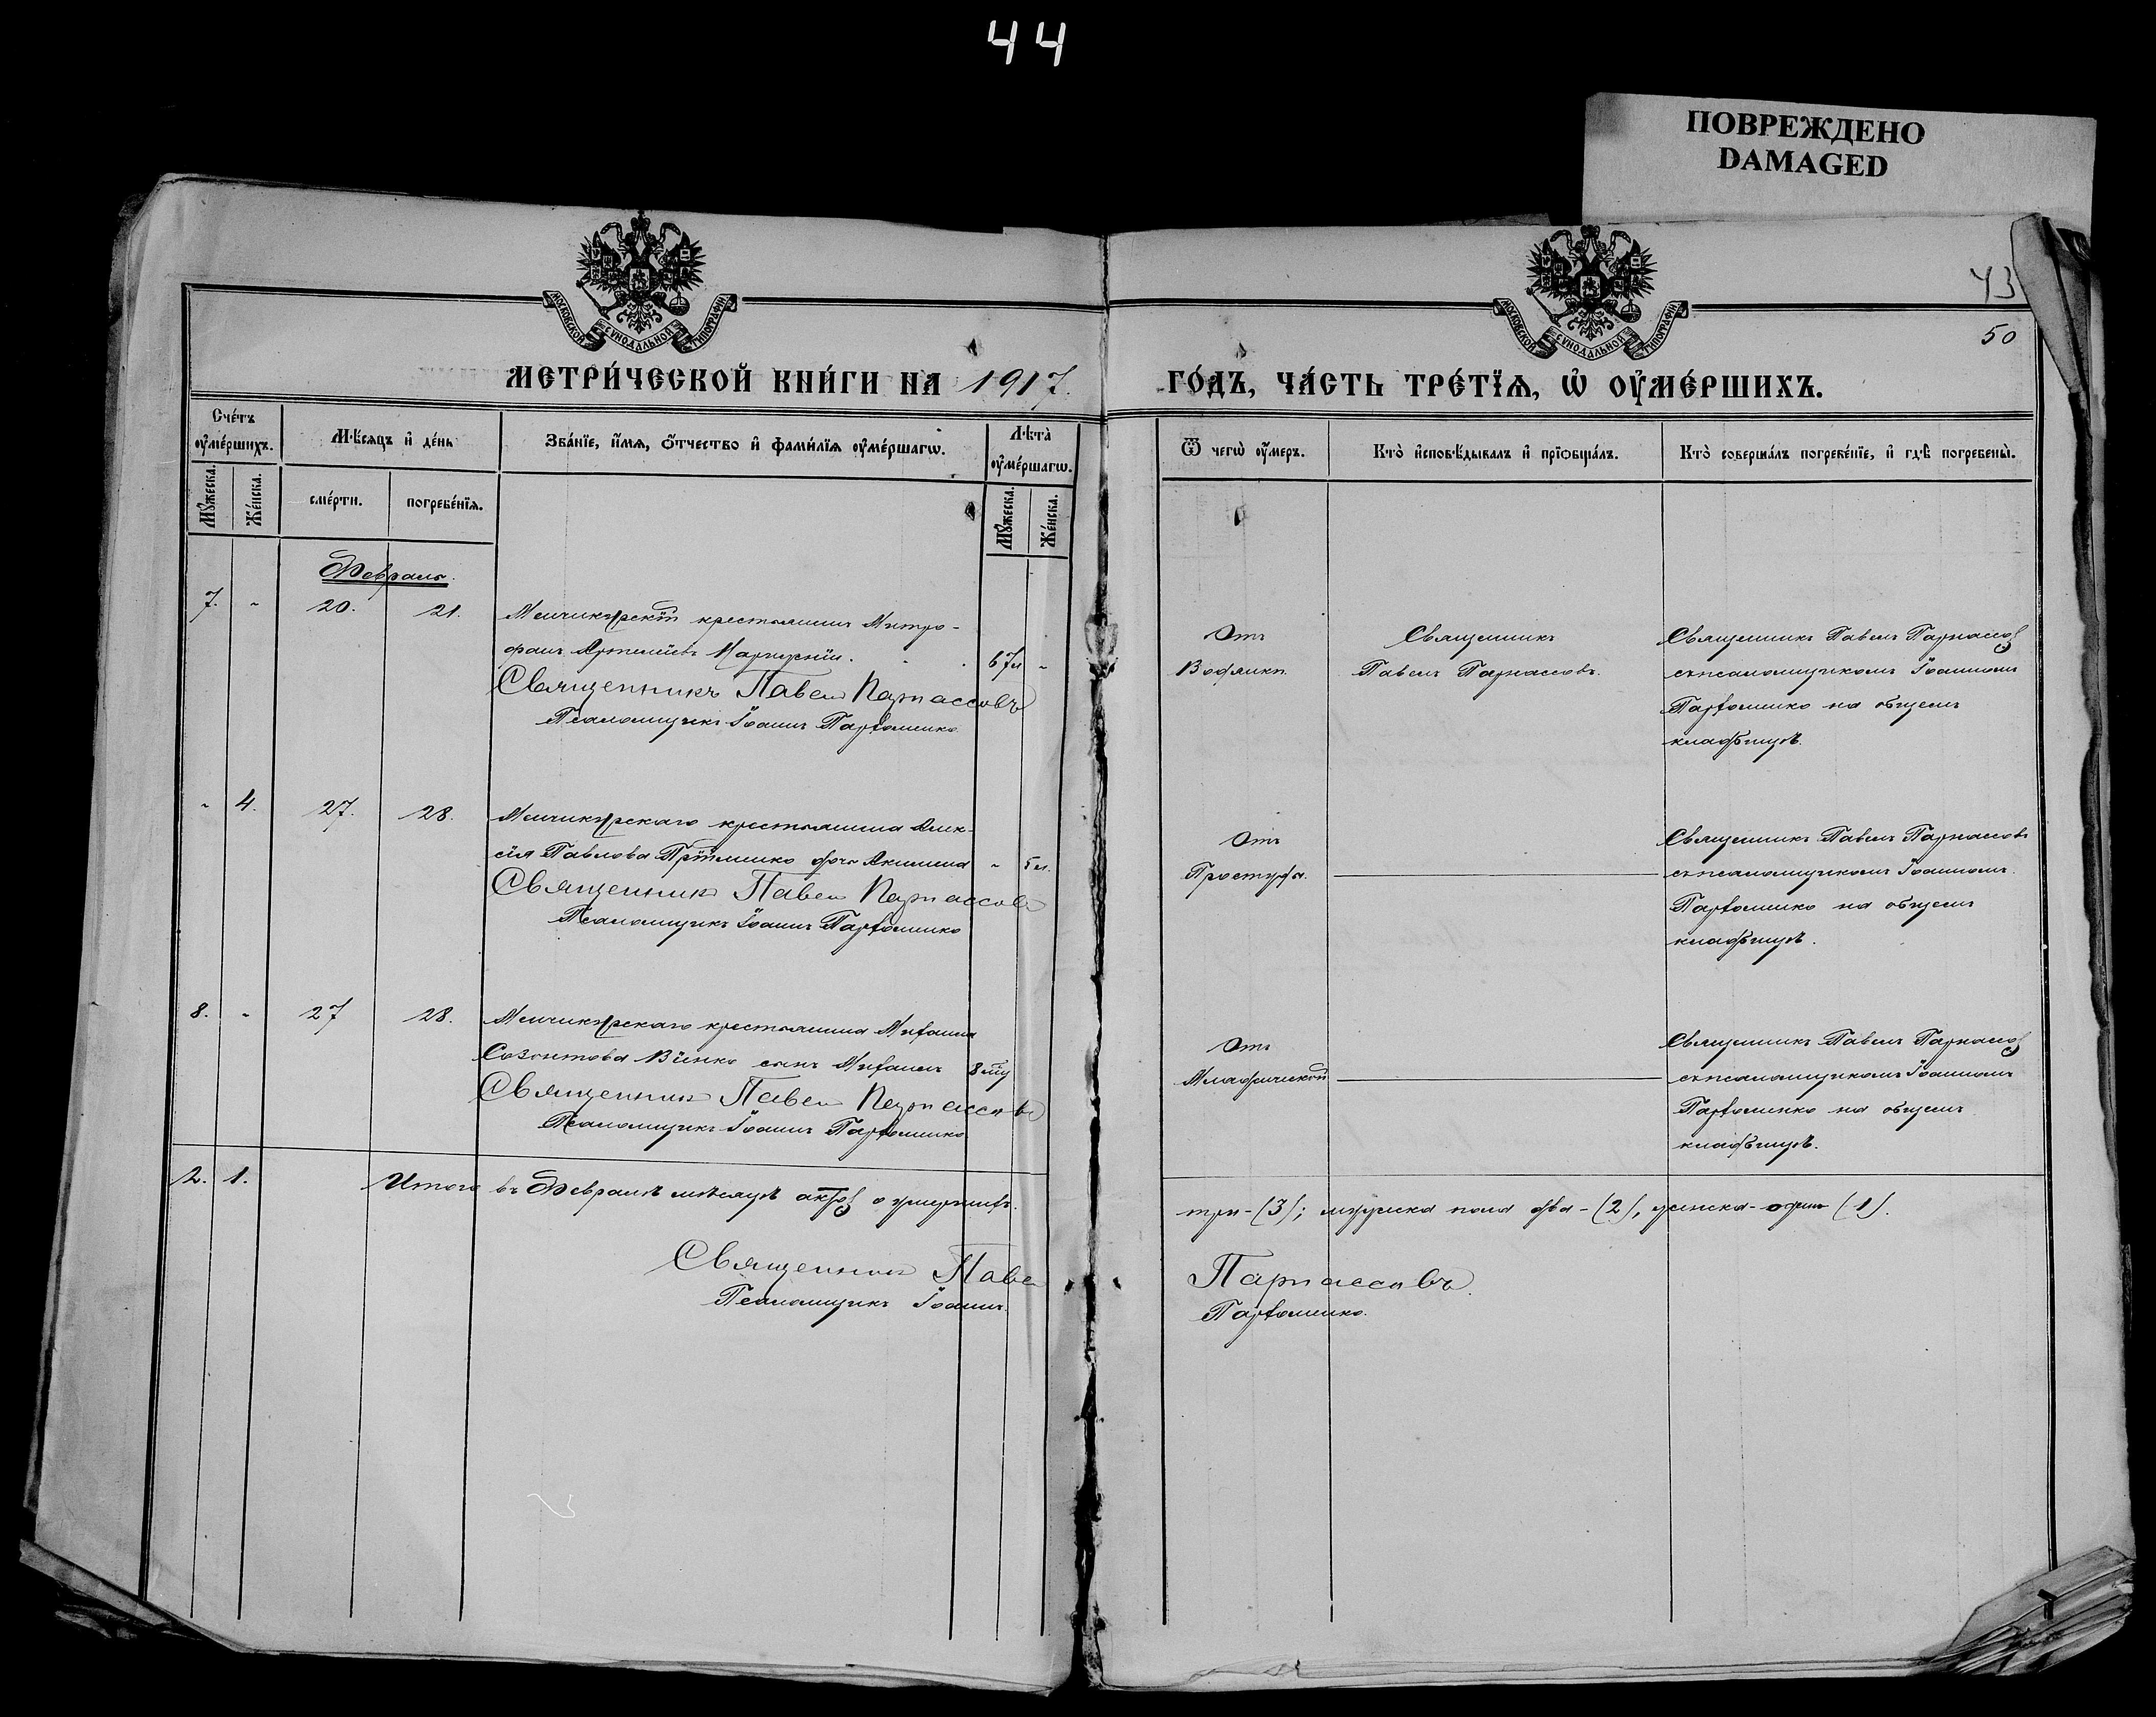 44
ПОВРЕЖДЕНО
DAMAGED
МОСКОВСКОЙ СѴНОДАЛЬНОЙ ТИПОГРАФІИ
МОСКОВСКОЙ СѴНОДАЛЬНОЙ ТИПОГРАФІИ
43
50
МЕТРИ́ЧЕСКОЙ КНИ́ГИ НА 1917.
ГО́ДЪ, ЧА́СТЬ ТРЕ́ТЇѦ, Ѡ ОУМЕ́РШИХЪ.
Сче́тъ оуме́ршихъ.
Мꙋ́жеска.
Же́нска.
Мѣ́сяцъ и де́нь
сме́рти.
погребе́нїѧ.
Зва́нїе, и́мѧ, о́тчество и фами́лїѧ оуме́ршагѡ.
Лѣ́та оуме́ршагѡ.
Мꙋ́жеска.
Же́нска.
Ѿ чегѡ̀ оу́меръ.
Кто̀ исповѣ́дывалъ и прїѡбща́лъ.
Кто̀ соверша́лъ погребе́нїе, и гдѣ̀ погребены̀.
Февраль.
7. - 20. 21. Менчикурскій крестьянинъ Митро-
фанъ Артеміевъ 67л -
Священникъ Павелъ Парнассовъ
Псаломщикъ Іоаннъ Пархоменко
Отъ
Водянки.
Священникъ
Павелъ Парнассовъ.
Священникъ Павелъ Парнассов
съ псаломщикомъ Іоанномъ
Пархоменко на общемъ
кладбищѣ.
- 4. 27. 28. Менчикурскаго крестьянина Алек-
сія Павлова дочь Акилина - 5л.
Священникъ Павел Парнассовъ
Псаломщикъ Іоаннъ Пархоменко
Отъ
Простуды.
Священникъ Павелъ Парнассовъ
съ псаломщикомъ Іоанномъ
Пархоменко на общемъ
кладбищѣ.
8. - 27 28. Менчикурскаго крестьянина Михаила
Созонтова Вїенко сынъ Михаилъ
Священникъ Павел Парнассовъ
Псаломщикъ Іоаннъ Пархоменко
Отъ
Младенческой
Священникъ Павелъ Парнассов
съ псаломщикомъ Іоанномъ
Пархоменко на общемъ
кладбищѣ.
2. 1. Итого въ Февралѣ мѣсяцѣ актов о умершихъ.
три-(3); мужска пола два-(2), женска-один (1).
Священникъ Павел
Парнассовъ.
Псаломщикъ Іоаннъ
Пархоменко.